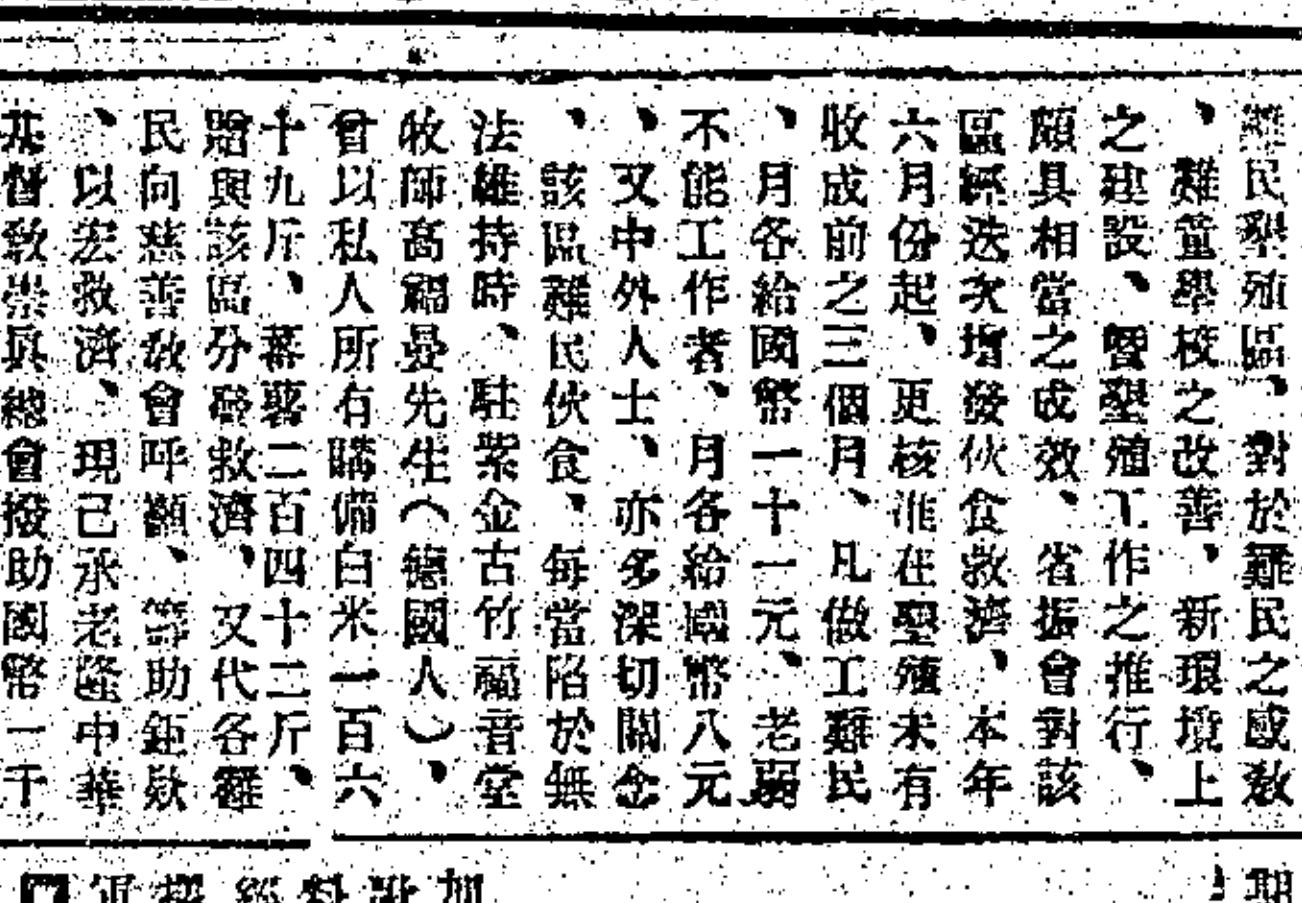 難民墾殖區、對於難民之感教
、難童學校之改善、新環境上
之建設、暨墾殖工作之推行、
頗具相當之成效、省振會對該
區經迭次增發伙食救濟、本年
六月份起、更核准在墾殖未有
收成前之三個月、凡做工難民
、月各給國幣一十二元、老弱
不能工作者、月各給國幣八元
、又中外人士、亦多深切關念
、該區難民伙食、每當陷於無
法維持時、駐紫金古竹福音堂
牧師高福曼先生(德國人)、
曾以私人所有購備白米一百六
十九斤、蕃薯二百四十二斤、
贈與該區分發救濟、又代各難
民向慈善教會呼籲、籌助鉅欵
、以宏救濟、現己承老隆中華
基督教崇眞總會撥助國幣一千